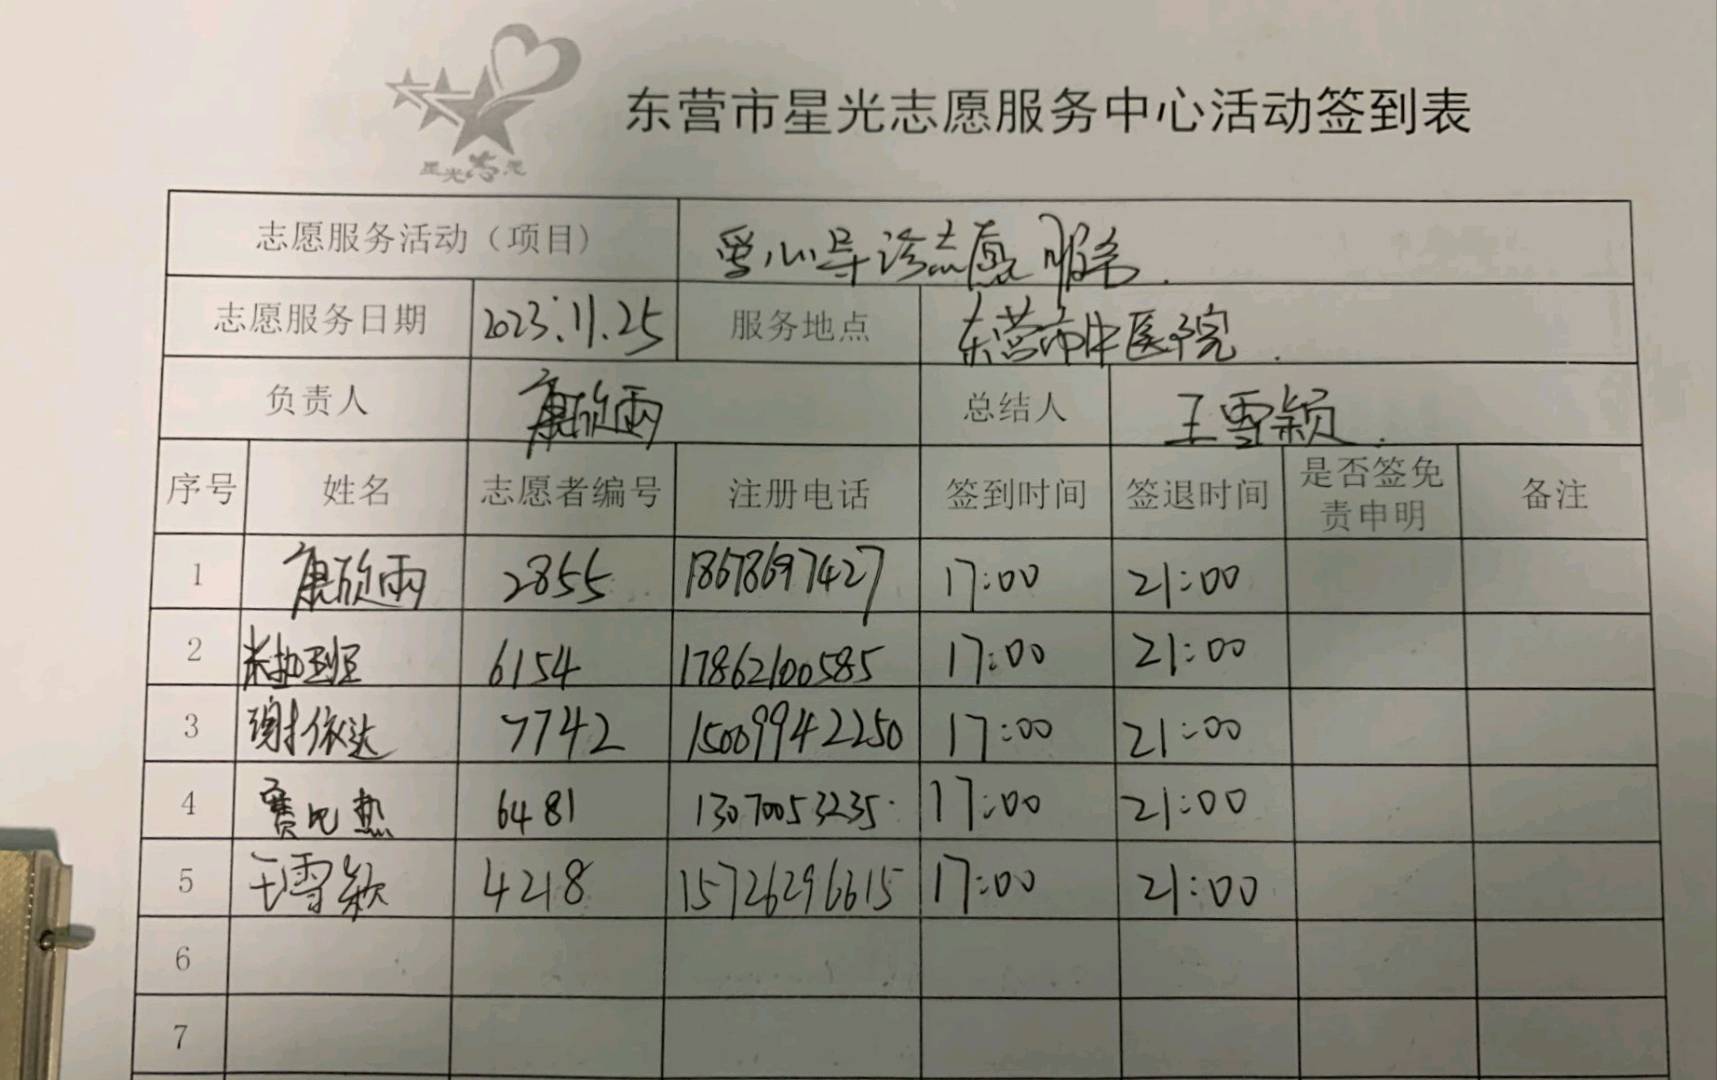 星光志愿
东营市星光志愿服务中心活动签到表
志愿服务活动（项目） 爱心导诊志愿服务.
志愿服务日期 2023.11.25 服务地点 东营市中医院.
负责人 康欣雨 总结人 王雪颖.
序号 姓名 志愿者编号 注册电话 签到时间 签退时间 是否签免责申明 备注
1 康欣雨 2855 18678697427 17:00 21:00
2 6154 17862100585 17:00 21:00
3 谢依达 7742 15009942250 17:00 21:00
4 赛比热 6481 13070053235 17:00 21:00
5 王雪颖 4218 15726296615 17:00 21:00
6
7